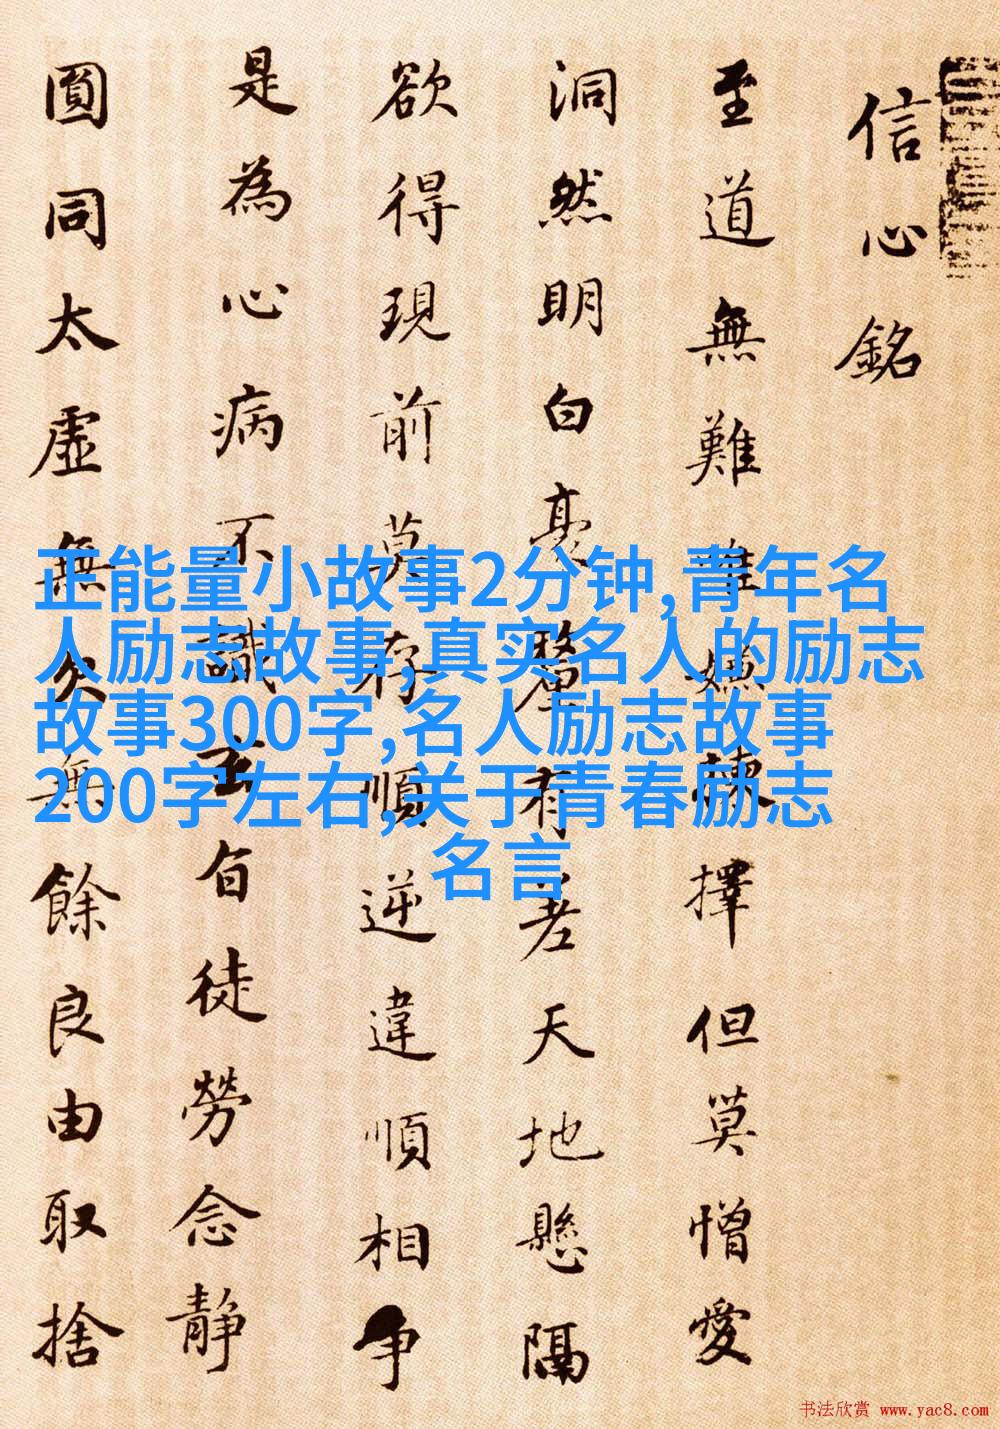 信心銘
至道無難唯嫌揀擇但莫憎愛
洞然明白毫釐有差天地懸隔
欲得現前莫存順逆違順相争
是為心病不識玄旨徒勞念静
圓同太虛無欠無餘良由取捨
正能量小故事2分钟,青年名
人励志故事,真实名人的励志
故事300字,名人励志故事
200字左右,关于青春励志
名言
书法欣赏 www.yac8.com